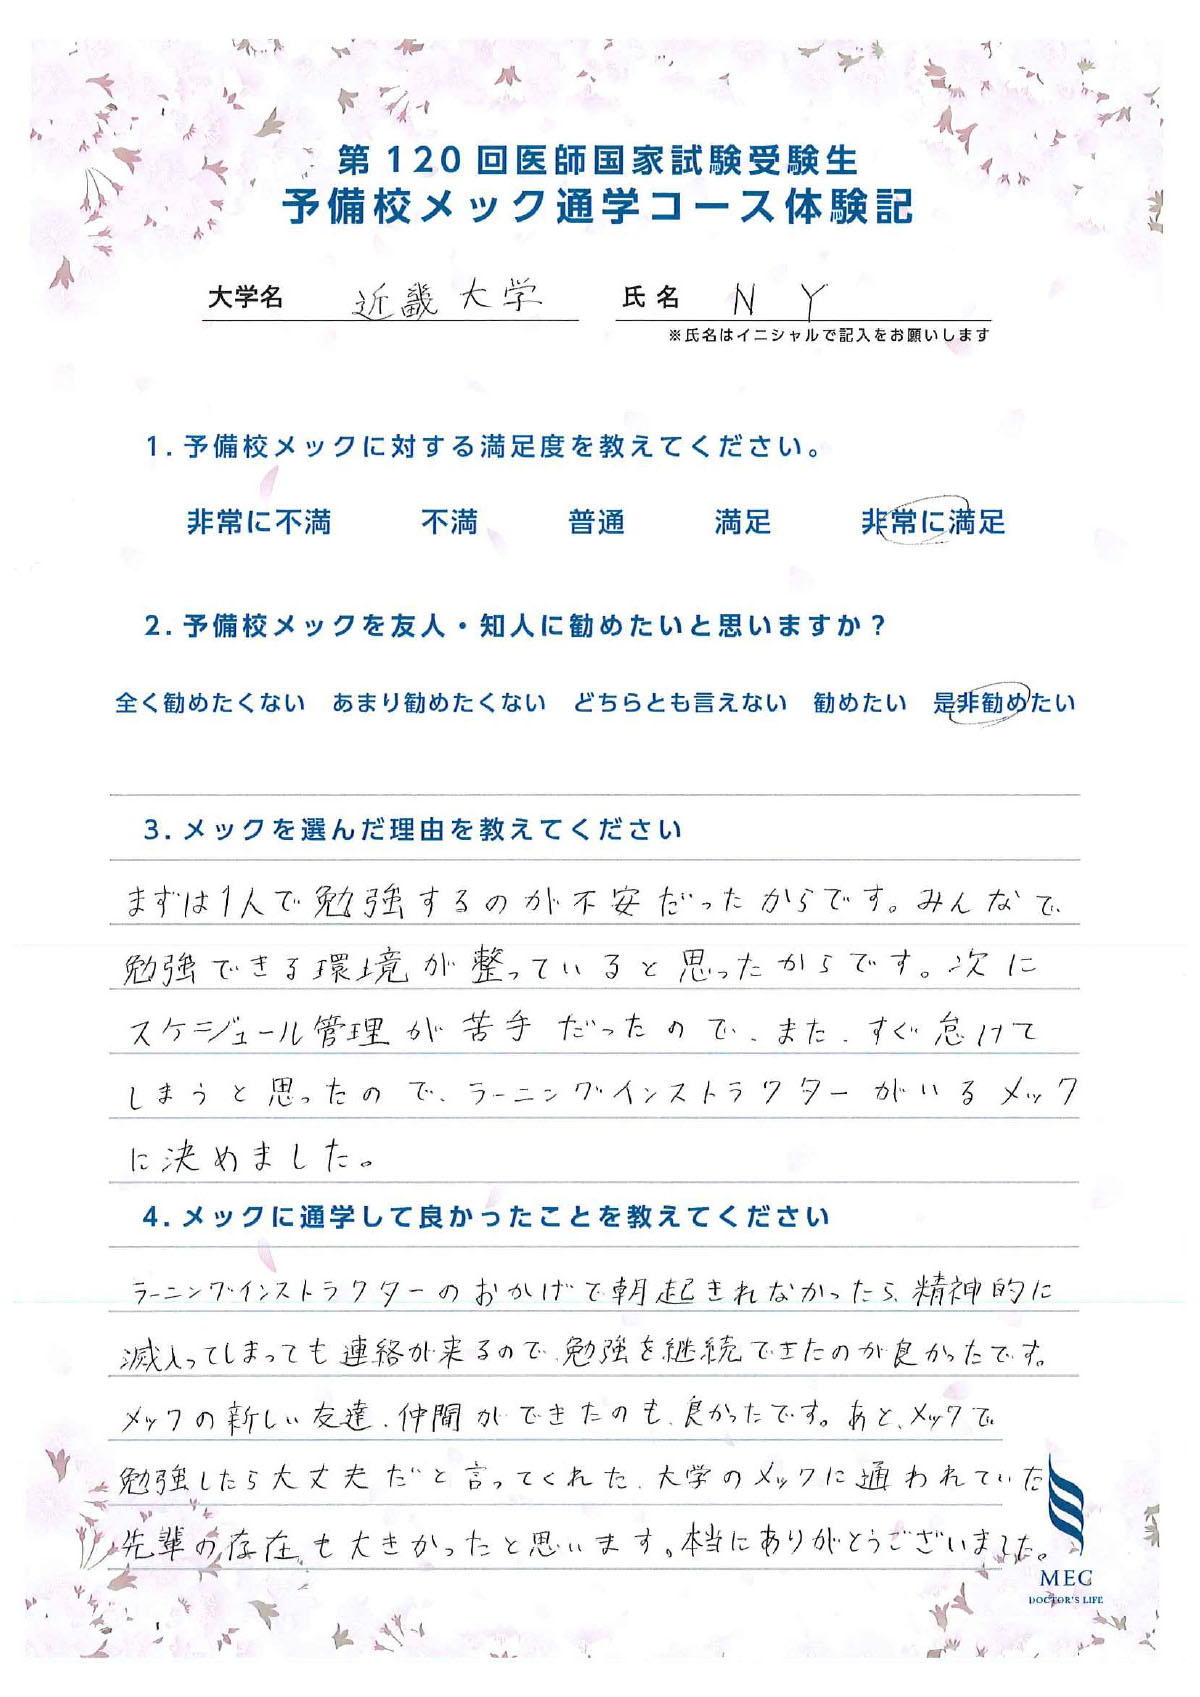 第120回医師国家試験受験生
予備校メック通学コース体験記
大学名 近畿大学 氏名 N Y
※氏名はイニシャルで記入をお願いします
1. 予備校メックに対する満足度を教えてください。
非常に不満 不満 普通 満足 非常に満足
2. 予備校メックを友人・知人に勧めたいと思いますか？
全く勧めたくない あまり勧めたくない どちらとも言えない 勧めたい 是非勧めたい
3. メックを選んだ理由を教えてください
まずは1人で勉強するのが不安だったからです。みんなで、
勉強できる環境が整っていると思ったからです。次に
スケジュール管理が苦手だったので、また、すぐ怠けて
しまうと思ったので、ラーニングインストラクターがいるメック
に決めました。
4. メックに通学して良かったことを教えてください
ラーニングインストラクターのおかげで朝起きれなかったら、精神的に
滅入ってしまっても連絡が来るので、勉強を継続できたのが良かったです。
メックの新しい友達、仲間ができたのも、良かったです。あと、メックで
勉強したら大丈夫だと言ってくれた、大学のメックに通われていた
先輩の存在も大きかったと思います。本当にありがとうございました。
MEC
DOCTOR'S LIFE